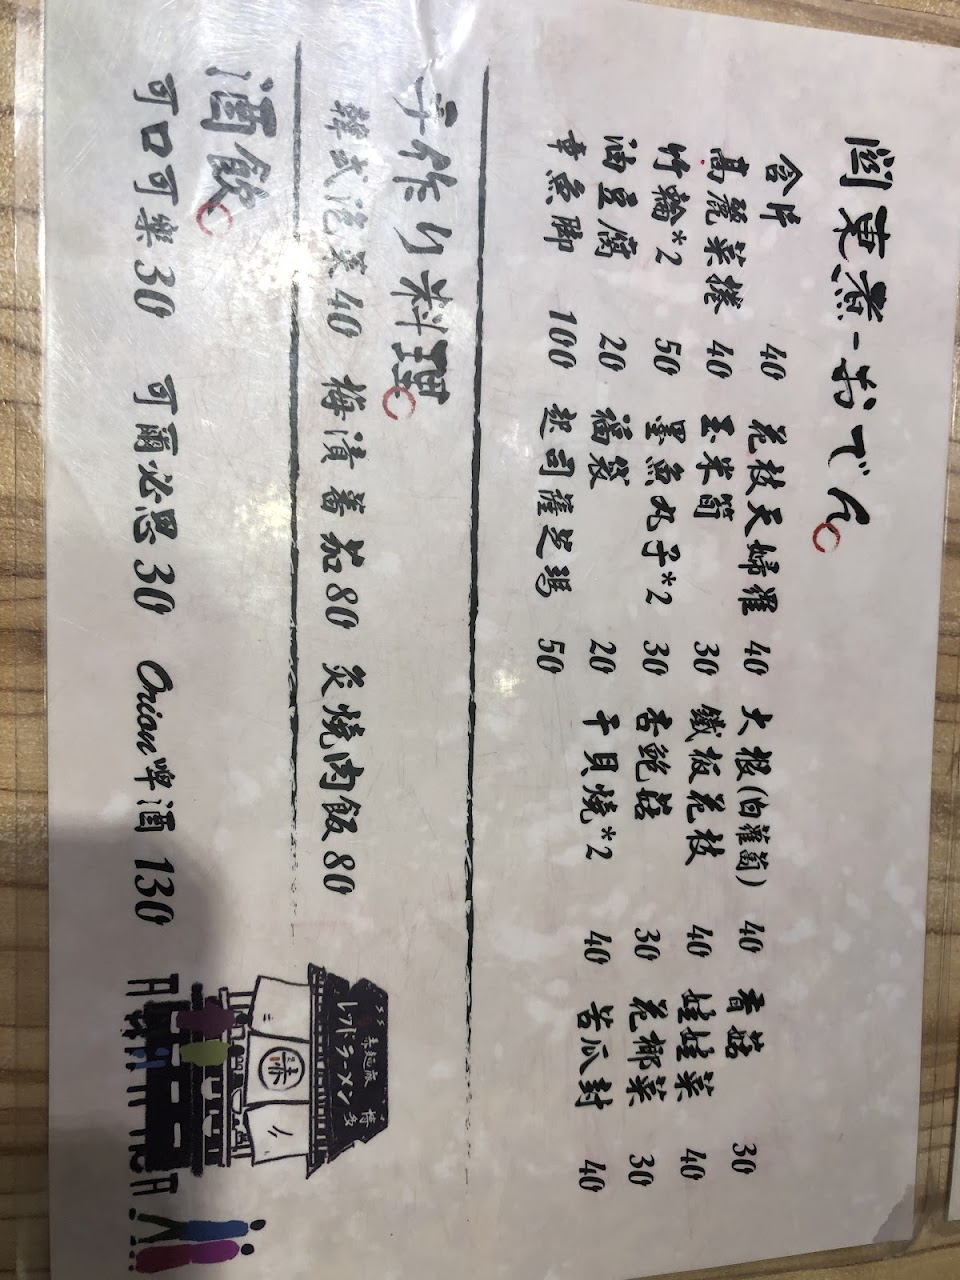 関東煮-おでん
合片 40 花枝天婦羅 40 大根(白蘿蔔) 40 香菇 30
高麗菜捲 40 玉米筍 30 鐵板花枝 40 娃娃菜 40
竹輪*2 50 墨魚丸子*2 30 杏鮑菇 30 花椰菜 30
油豆腐 20 福袋 20 干貝燒*2 40 苦瓜封 40
章魚脚 100 起司薩芝瑪 50
手作り料理
韓式泡菜40 梅漬蕃茄80 炙燒肉飯80
酒飲
可口可樂30 可爾必思30 Orion啤酒130
博多
レッドラーメン
赤